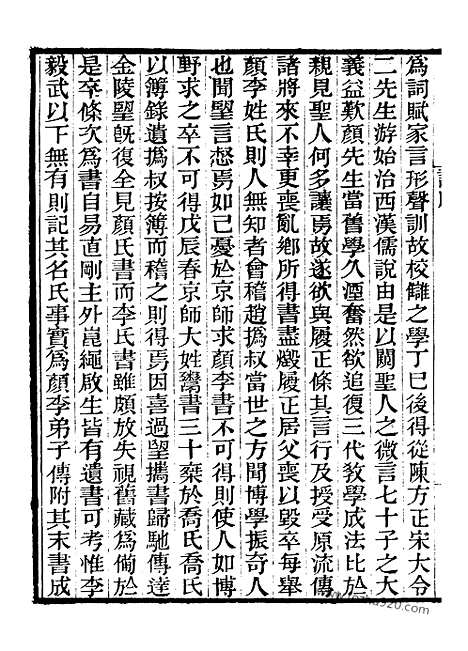 為詞賦家言形聲訓故校讎之學丁巳後得從陳方正宋大令
二先生游始治西漢儒說由是以闚聖人之微言七十子之大
義益歎顏先生當舊學久湮奮然欲追復三代敎學成法比於
親見聖人何多讓焉故遂欲與履正條其言行及授受原流傳
諸將來不幸更喪亂鄉所得書盡燬履正居父喪以毀卒每舉
顏李姓氏則人無知者會稽趙撝叔當世之方聞博學振奇人
也聞朢言惄焉如己憂於京師求顏李書不可得則使人如博
野求之卒不可得戊辰春京師大姓鬻書三十椉於喬氏喬氏
以簿錄遺撝叔按簿而稽之則得焉因喜過朢攜書歸馳傳達
金陵朢旣復全見顏氏書而李氏書雖頗放失視舊藏為僃於
是卒條次為書自易直剛主外崑繩啟生皆有遺書可考惟李
毅武以下無有則記其名氏事實為顏李弟子傳附其末書成